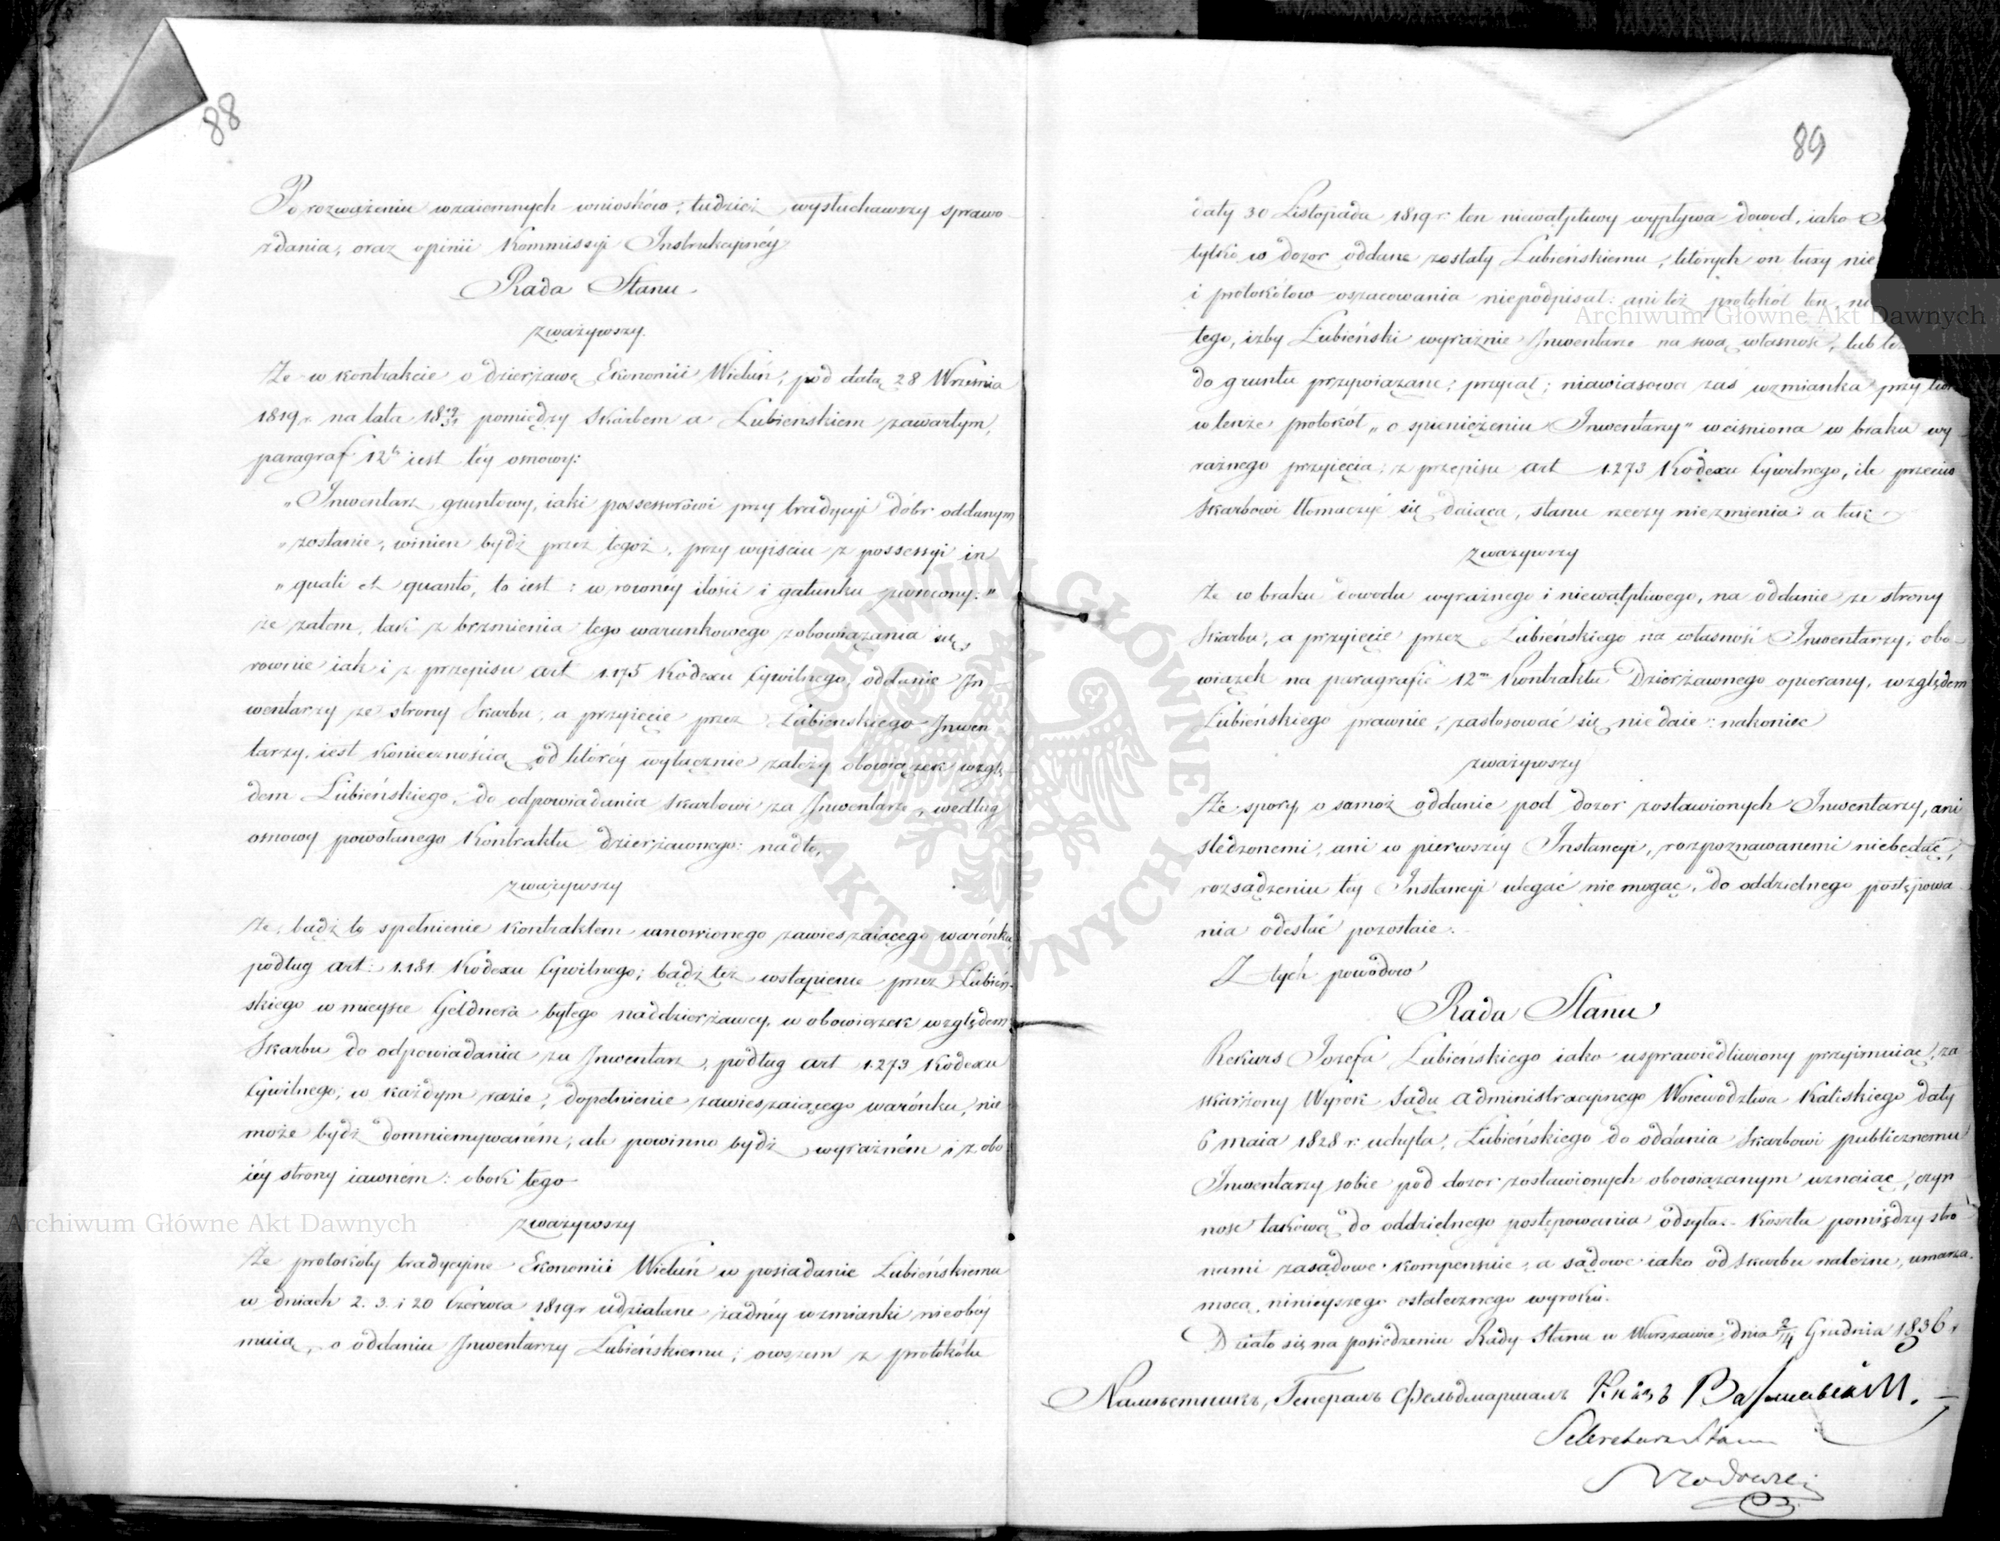 88
Po rozważeniu wzaiemnych wniosków, tudzież wysłuchawszy sprawo
zdania, oraz opinii Kommissyi Instrukcyinéy
Rada Stanu
zważywszy.
Że w kontrakcie o dzierżawę Ekonomii Wieluń, pod datą 28 Września
1819 r. na lata pomiędzy Skarbem a Lubieńskiem zawartym,
paragraf 12ty iest téy osnowy:
„Inwentarz gruntowy, iaki possessorowi przy tradycyi dóbr oddanym
„zostanie, winien bydź przez tegoż, przy wyiściu z possessyi in
„quali et quanto, to iest: w równéy ilości i gatunku zwrócony."
że zatem, tak z brzmienia tego warunkowego zobowiązania się,
równie iak i z przepisu art 1.175 Kodexu Cywilnego, oddanie In-
wentarzy ze strony Skarbu, a przyięcie przez Lubieńskiego Inwen
tarzy, iest koniecznością, od któréy wyłącznie zależy obowiązek wzglę-
dem Lubieńskiego, do odpowiadania Skarbowi za Inwentarze, według
osnowy powołanego Kontraktu dzierżawnego: nadto,
zważywszy
Że, bądź to spełnienie kontraktem umówionego zawieszaiącego warónku
podług art: 1.181. Kodexu Cywilnego; bądź też wstąpienie przez Lubień-
skiego w mieysce Geldnera byłego naddzierżawcy, w obowiązek względem
Skarbu do odpowiadania za Inwentarz, podług art 1.273 Kodexu
Cywilnego, w każdym razie, dopełnienie zawieszaiącego warónku, nie
może bydź domniemywaném, ale powinno bydź wyraźném i z obo
iéy strony iawném: obok tego
zważywszy
Że protokóły tradycyine Ekonomii Wieluń w posiadanie Lubieńskiemu
w dniach 2. 3. i 20 Czérwca 1819 r. udziałane żadnéy wzmianki nieobéy
muią, o oddaniu Inwentarzy Lubieńskiemu; owszem z protokółu
89
daty 30 Listopada 1819 r. ten niewątpliwy wypływa dowód, iako
tylko w dozór oddane zostały Lubieńskiemu, których on taxy nie
i protokółow oszacowania niepodpisał: ani też protokół ten
tego, iżby Lubieński wyraźnie Inwentarze na swą własność, lub też
do gruntu przywiązane, przyiął; nawiasowa zaś wzmianka przy
w tenże protokół „o spieniężeniu Inwentarzy" wciśniona w braku wy
raźnego przyięcia, z przepisu art 1.273 Kodexu Cywilnego, ile przeciw
Skarbowi tłomaczyć się daiąca, stanu rzeczy niezmienia: a tak
zważywszy
Że w braku dowodu wyraźnego i niewątpliwego, na oddanie ze strony
Skarbu, a przyięcie przez Lubieńskiego na własność Inwentarzy, obo-
wiązek na paragrafie 12m Kontraktu Dzierżawnego oparany, względem
Lubieńskiego prawnie, zastosować się nie daie: nakoniec
zważywszy
Że spory, o samoż oddanie pod dozór zostawionych Inwentarzy, ani
śledzonemi, ani w pierwszéy Instancyi, rozpoznawanemi niebędąć,
rozsądzeniu téy Instancyi ulegać nie mogąc, do oddzielnego postępowa
nia odesłać pozostaie.
Z tych powodów
Rada Stanu
Rekurs Józefa Lubieńskiego iako usprawiedliwiony przyimuiąc, za
skarżony Wyrok Sądu Administracyinego Woiewództwa Kaliskiego daty
6 maia 1828 r. uchyla, Lubieńskiego do oddania Skarbowi publicznemu
Inwentarzy sobie pod dozór zostawionych obowiązanym uznaiąc, czyn
ność takową do oddzielnego postępowania odsyła. Koszta pomiędzy stro
nami zasądowe kompensuie, a sądowe iako od Skarbu należne, umarza.
mocą ninieyszego ostatecznego wyroku.
Działo się na posiedzeniu Rady Stanu w Warszawie dnia 2/14 Grudnia 1836 r.
Намѣстникъ, Генералъ Фельдмаршалъ Князь Варшавскій.
Sekretarz Stanu
Archiwum Główne Akt Dawnych
Archiwum Główne Akt Dawnych
ARCHIWUM GŁÓWNE AKT DAWNYCH